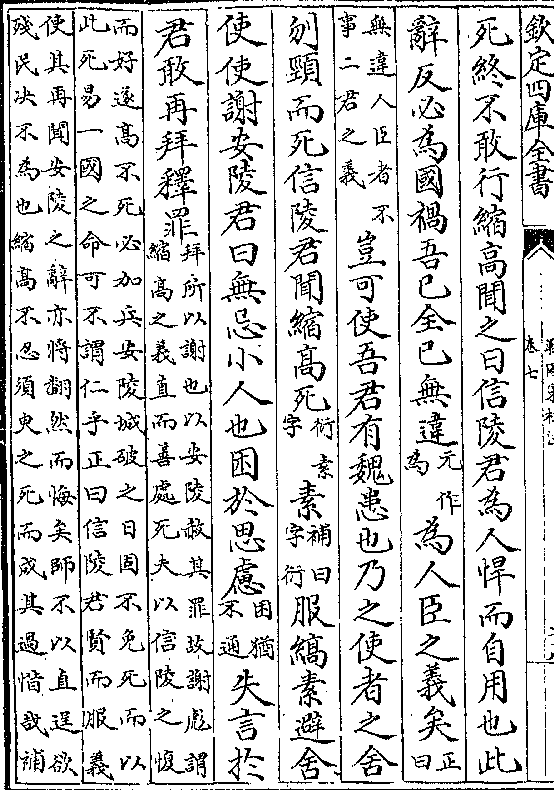 欽定四庫全書
卷七
死終不敢行縮高聞之曰信陵君為人悍而自用也此
辭反必為國禍吾已全己無違元作為為人臣之義矣正曰
無違人臣者不事二君之義豈可使吾君有魏患也乃之使者之舍
刎頸而死信陵君聞縮高死衍素字素補曰字衍服縞素避舍
使使謝安陵君曰無忌小人也困於思慮困猶不通失言於
君敢再拜釋罪拜所以謝也以安陵赦其罪故謝彪謂縮高之義直而善處死夫以信陵之愎
而好遂高不死必加兵安陵城破之日固不免死而以
此死易一國之命可不謂仁乎正曰信陵君賢而服義
使其再聞安陵之辭亦將翻然而悔矣師不以直逞欲
殘民决不為也縮高不忍須臾之死而成其過惜哉補